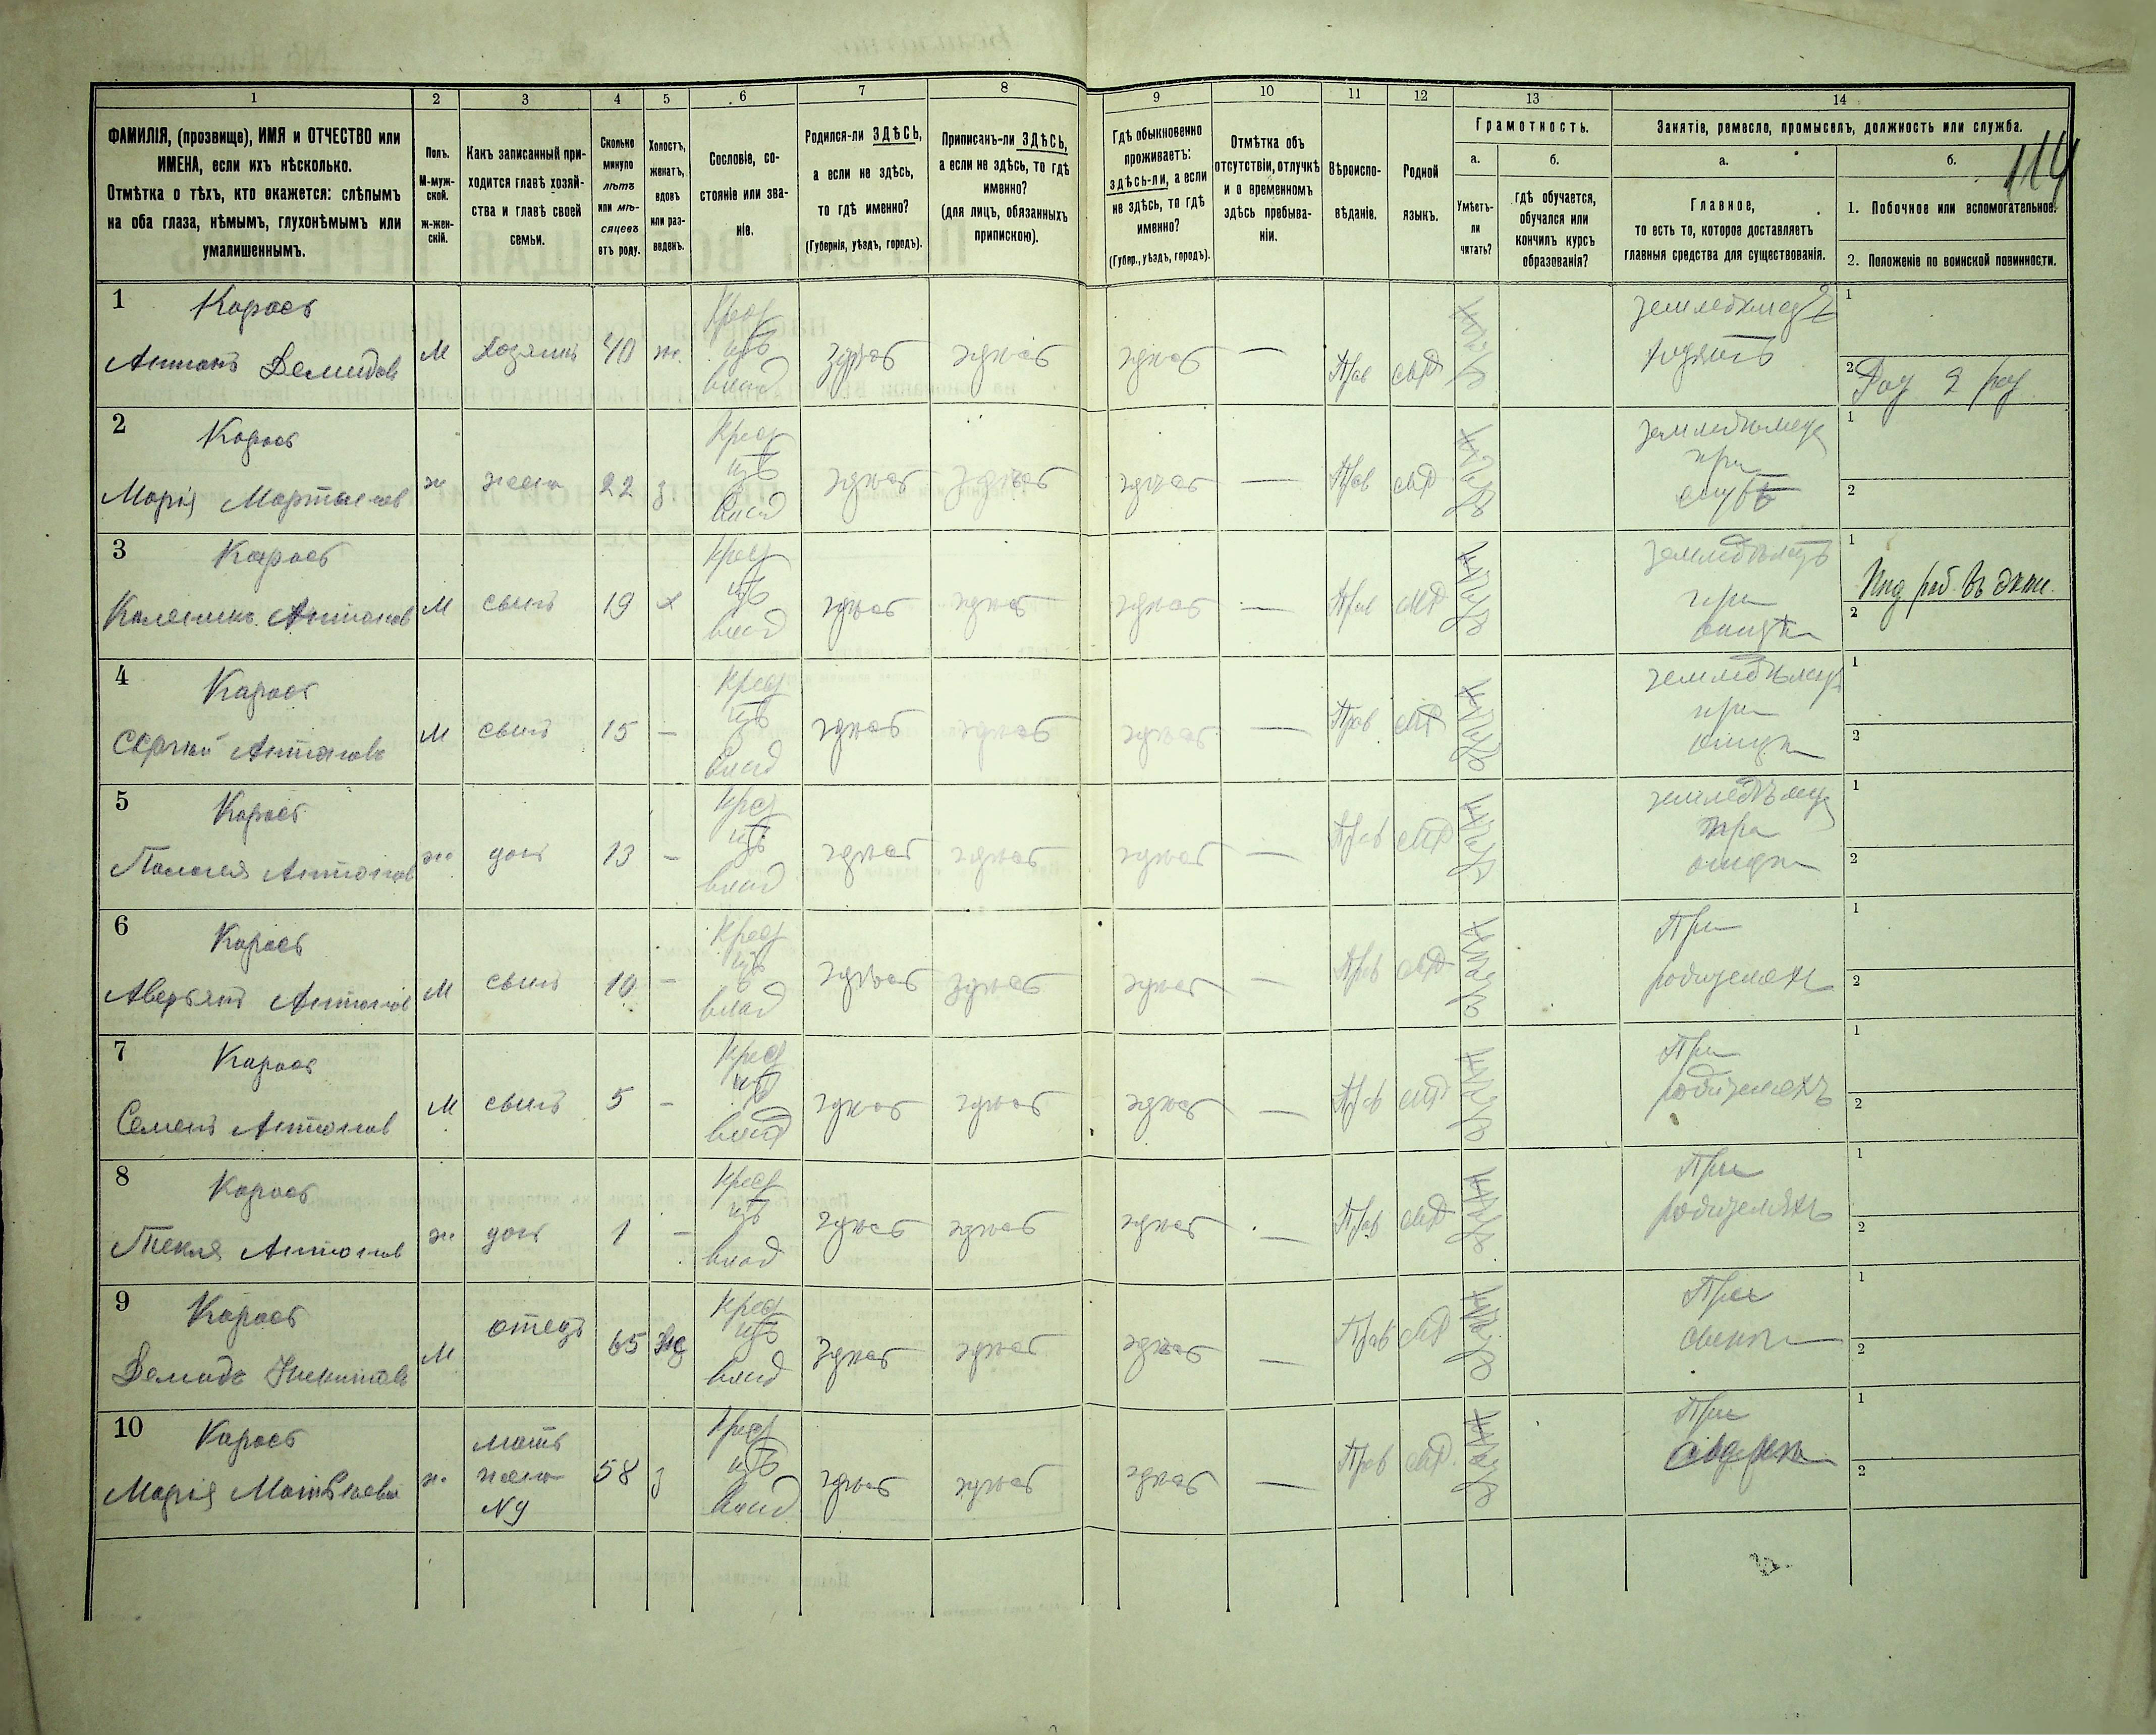 1 2 3 4 5 6 7 8 9 10 11 12 13 14
114
ФАМИЛІЯ, (прозвище), ИМЯ и ОТЧЕСТВО или
ИМЕНА, если ихъ нѣсколько.
Отмѣтка о тѣхъ, кто окажется: слѣпымъ
на оба глаза, нѣмымъ, глухонѣмымъ или
умалишеннымъ.
Полъ.
М-муж-
ской.
ж-жен-
скій.
Какъ записанный при-
ходится главѣ хозяй-
ства и главѣ своей
семьи.
Сколько
минуло
лѣтъ
или мѣ-
сяцевъ
отъ роду.
Холостъ,
женатъ,
вдовъ
или раз-
веденъ.
Сословіе, со-
стояніе или зва-
ніе.
Родился-ли ЗДѢСЬ,
а если не здѣсь,
то гдѣ именно?
(Губернія, уѣздъ, городъ).
Приписанъ-ли ЗДѢСЬ,
а если не здѣсь, то гдѣ
именно?
(для лицъ, обязанныхъ
припискою).
Гдѣ обыкновенно
проживаетъ:
здѣсь-ли, а если
не здѣсь, то гдѣ
именно?
(Губер., уѣздъ, городъ).
Отмѣтка объ
отсутствіи, отлучкѣ
и о временномъ
здѣсь пребыва-
ніи.
Вѣроиспо-
вѣданіе.
Родной
языкъ.
Грамотность.
а.
Умѣетъ-
ли
читать?
б.
гдѣ обучается,
обучался или
кончилъ курсъ
образованія?
Занятіе, ремесло, промыселъ, должность или служба.
а.
Главное,
то есть то, которое доставляетъ
главныя средства для существованія.
б.
1. Побочное или вспомогательное.
2. Положеніе по воинской повинности.
1 Карась
Антонъ Демидовъ
М
Хозяинъ
40
ж.
Крест
изъ
влад
здесь
здесь
здесь
—
Прав
МР
нетъ
земледелец
хозяинъ
1
2
2 Карась
Марія Мартынов
ж
жена
22
з.
Крест
изъ
влад
здесь
здесь
здесь
—
Прав
МР
нетъ
при
1
2
3 Карась
Калиникъ Антонов
М
сынъ
19
х
Крест
изъ
влад
здесь
здесь
здесь
—
Прав
МР
нетъ
земледѣлецъ
при
отцѣ
1
2
4 Карась
Сергій Антоновъ
М
сынъ
15
—
Крест
изъ
влад
здесь
здесь
здесь
—
Прав
МР
нетъ
земледѣлец
при
отцѣ
1
2
5 Карась
Палагея Антонов
ж
доч
13
—
Крест
изъ
влад
здесь
здесь
здесь
—
Прав
МР
нетъ
при
отцѣ
1
2
6 Карась
Аверьянъ Антонов
М
сынъ
10
—
Крест
изъ
влад
здесь
здесь
здесь
—
Прав
МР
нетъ
При
родителяхъ
1
2
7 Карась
Семенъ Антонов
М
сынъ
5
—
Крест
изъ
влад
здесь
здесь
здесь
—
Прав
МР
нетъ
При
родителяхъ
1
2
8 Карась
Текля Антонов
ж
доч
1
—
Крест
изъ
влад
здесь
здесь
здесь
—
Прав
МР
нетъ
При
родителяхъ
1
2
9 Карась
Демидъ Никитовъ
М
отецъ
65
Крест
изъ
влад
здесь
здесь
здесь
—
Прав
МР
нетъ
При
1
2
10 Карась
Марія Матвѣева
ж
мать
жена
N9
58
з
Крест
изъ
влад
здесь
здесь
здесь
—
Прав
МР
нетъ
При
1
2